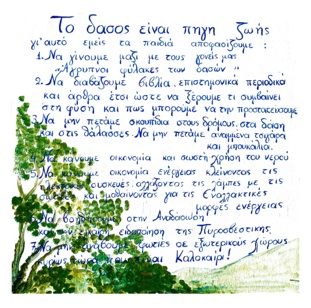 Το δασος είναι πηγη ζωής
γι'αυτό εμείς τα παιδιά αποφασίζουμε :
1. Να γίνουμε μαζί με τους γονείς μας
"Άγρυπνοι φύλακες των δασών"
2. Να διαβάζουμε βιβλία, επιστημονικά περιοδικά
και άρθρα έτσι ώστε να ξέρουμε τι συμβαίνει
στη φύση και πως μπορούμε να την προστατεύσουμε
3. Να μην πετάμε σκουπίδια στους δρόμους, στα δάση
και στις θάλασσες. Να μην πετάμε αναμμένα τσιγάρα
και μπουκάλια.
4. Να κάνουμε οικονομία και σωστή χρήση του νερού
5. Να κάνουμε οικονομία ενέργειας κλείνοντας τις
ηλεκτρικές συσκευές, αλλάζοντας τις λάμπες με τις
και μαθαίνοντας για τις Εναλλακτικές
μορφές ενέργειας
6. Να βοηθήσουμε στην Αναδάσωση
και την έγκαιρη ειδοποίηση της Πυροσβεστικής
7. Να μην ανάβουμε φωτιές σε εξωτερικούς χώρους
τώρα που είναι Καλοκαίρι!